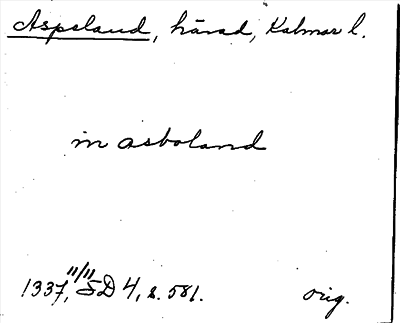 Aspeland, härad, Kalmar l.
in asboland
1337, 11/11 SD 4, s. 581. orig.